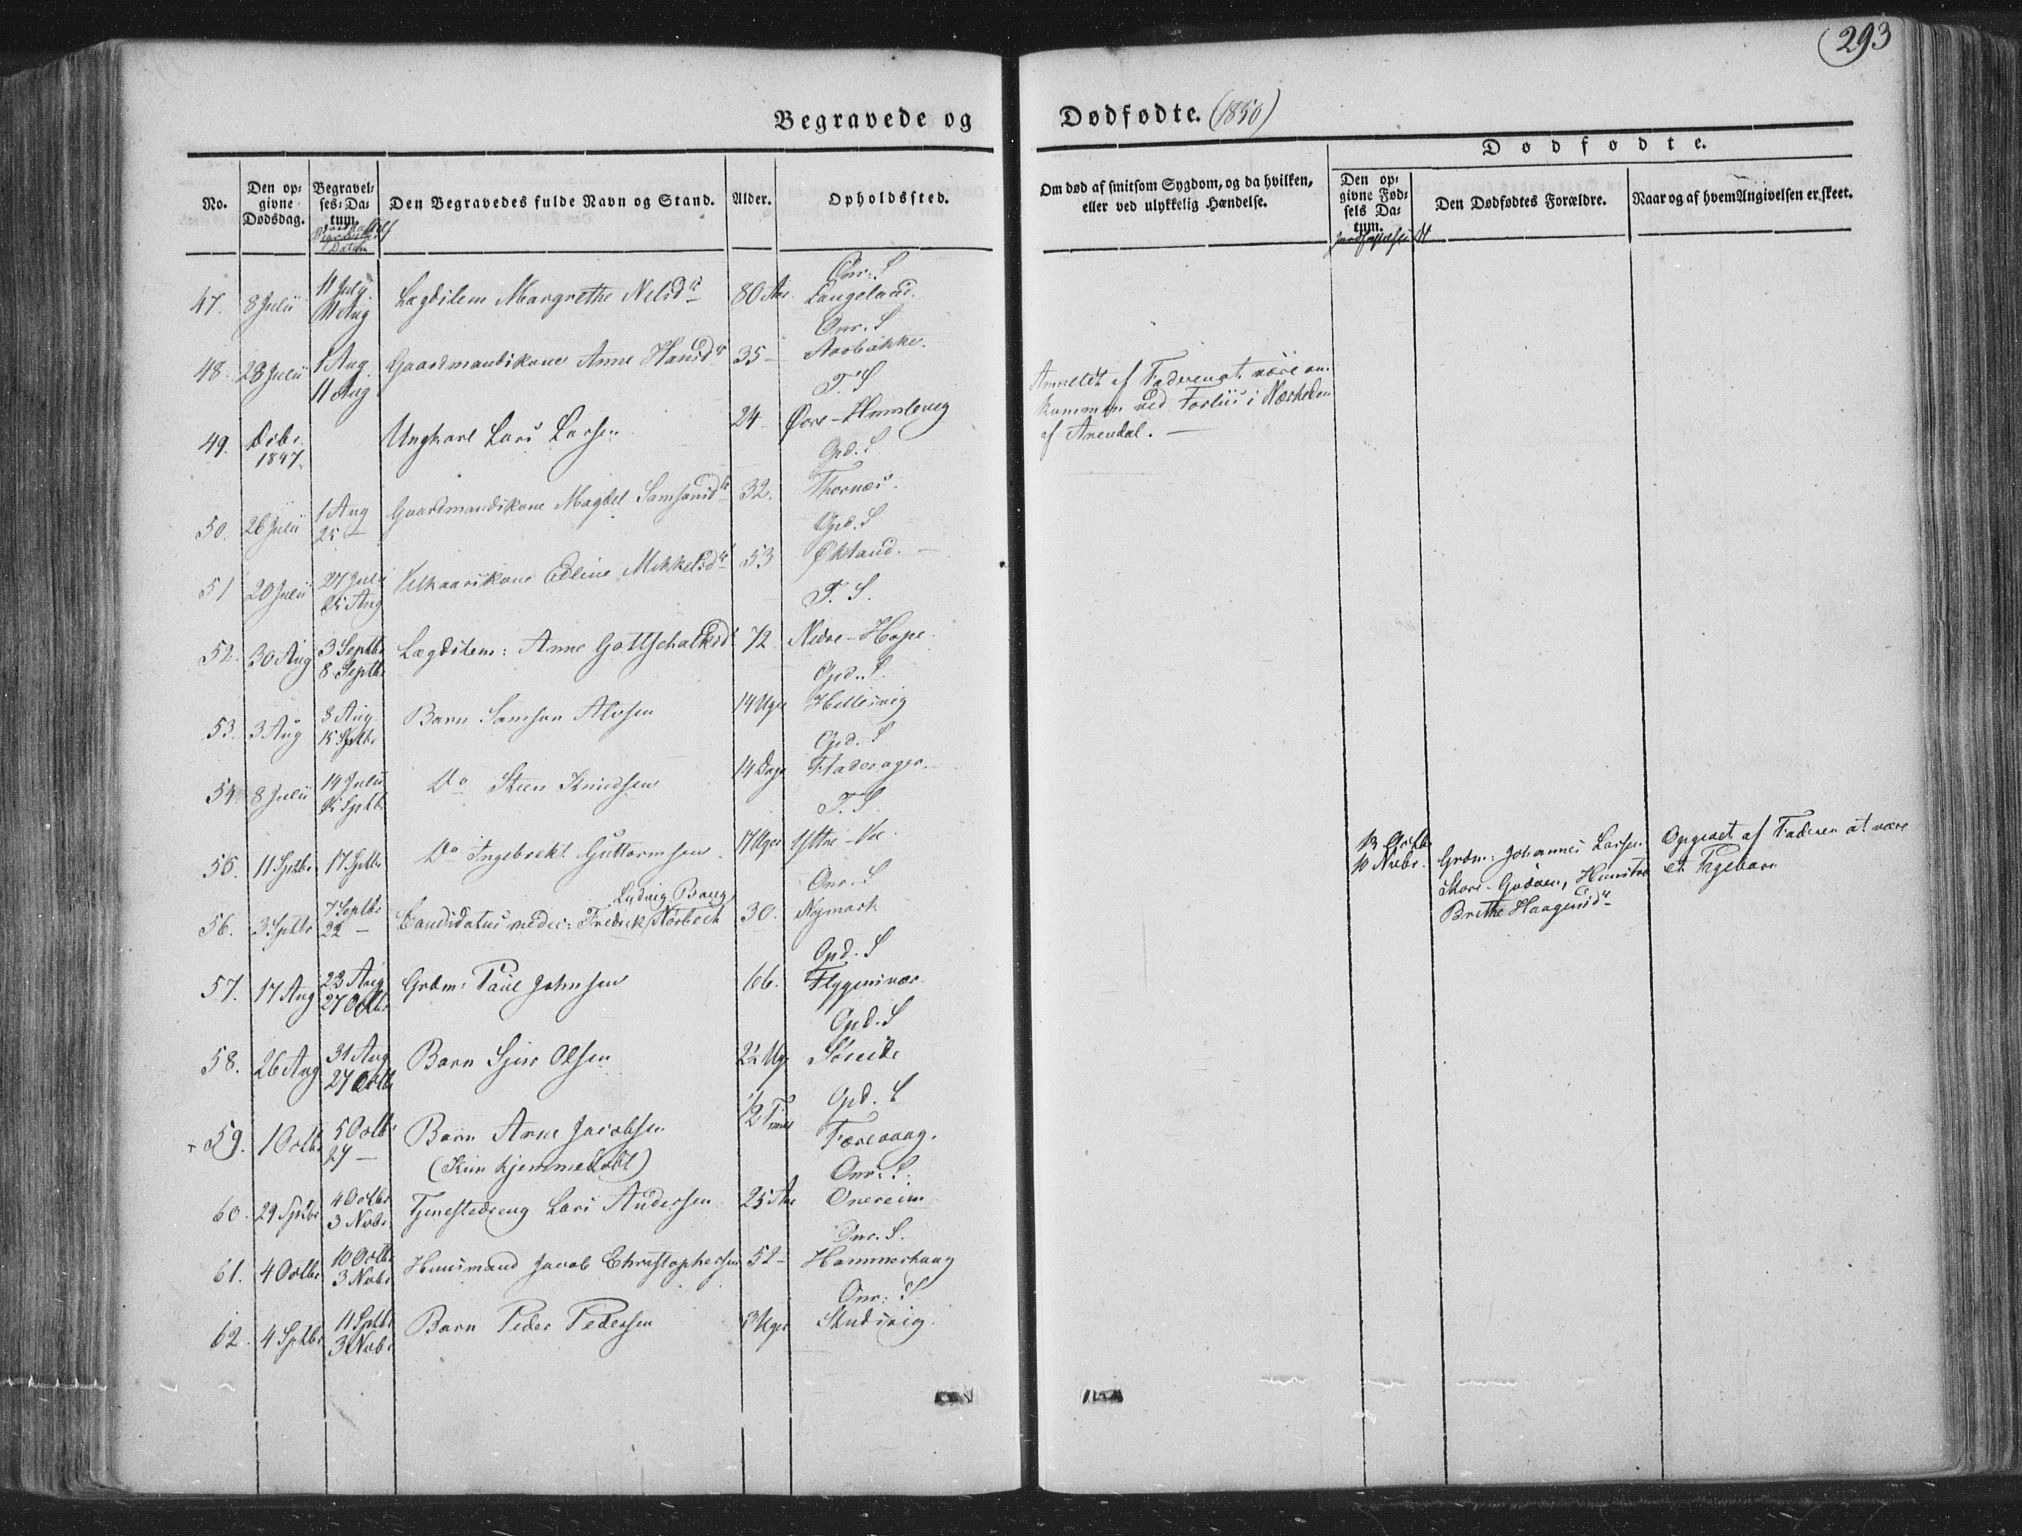 293
Begravede og Dødfødte. (1850)
Dødfødte.
No.
Den opgivne Dødsdag.
Begravelses-Datum.
Den Begravedes fulde Navn og Stand.
Alder.
Opholdssted.
Om død af smitsom Sygdom, og da hvilken, eller ved ulykkelig Hændelse.
Den opgivne Fødsels Datum.
Den Dødfødtes Forældre.
Naar og af hvem Angivelsen er skeet.
Onr: S
47. 8 Julii 11 July 11 Aug Lægdslem Margrethe Nelsdr 80 Aar. Langeland.
Onr. S
48. 28 Julii 1 Aug. 11 Aug Gaardmandskone Anne Hansdr 35 – Aarbakke.
T. S
49. Debr. 1847. Ungkarl Lars Larsen 24 Øvre-Humlevig
Anmeldt af Faderen at være om-
kommen ved Forliis i Nærheden
af Arendal. —
Opd. S
50. 26 Julii 1 Aug 25 – Gaardmandskone Magdel Samsonsdr 32. Thornæs.
Opd. S
51 20 Julii 27 Juli 25 Aug Kelkaarskone Edline Mikkelsdr 53 Økland. –
T. S.
52. 30 Aug 3 Septbr 8 Septbr Lægdslem: Anne Gottschalksdr 72 Nedre-Hope.
Opd. S.
53. 3 Aug 8 Aug. 15 Sptbr Barn Samson Alvsen 14 Uger Hellesvig
Opd. S
54 8 Julii 14 Julii 15 Sptb. Do Steen Knudsen 14 Dage Fladerager.
T. S
55. 11 Sptbr 17 Sptbr Do Ingebrekt Guttormsen. 17 Uger Ystre-
13 Octbr 10 Nvbr. Grdm: Johannes Larsen
Gudøen,
Brithe Haagensdr
Opgivet af Faderen at være
et Ægebarn
Onr: S
Ludvig Bang
56. 3 Sptbr 7 Septbr 22 – Candidatus medic: Fredrik Norbech 30. Nymark
Opd. S
57. 17 Aug 23 Aug 27 Octbr Grdm: Paul Johnsen 66. Flygensvær
Opd. S
58. 26 Aug 31 Aug 27 Octb Barn Sjur Olsen 22 Ug Søreide
Opd. S
59. 1 Octbr 5 Octbr 27 – Barn Arne Jacobsen 1/2 Time Færevaag.
(Kun hjemmedøbt)
Onr: S.
60. 29 Sptbr 4 Octbr 3 Nvbr. Tjenestedreng Lars Andersen 25 Aar Onereim
Onr. S.
61. 4 Octbr 10 Octbr 3 Nvbr Huusmand Jacob Christophersen 52 – Hammerhaug
Onr: S
62. 4 Sptbr 11 Sptbr 3 Nvbr Barn Peder Pedersen 3 Uger Skudsvig.